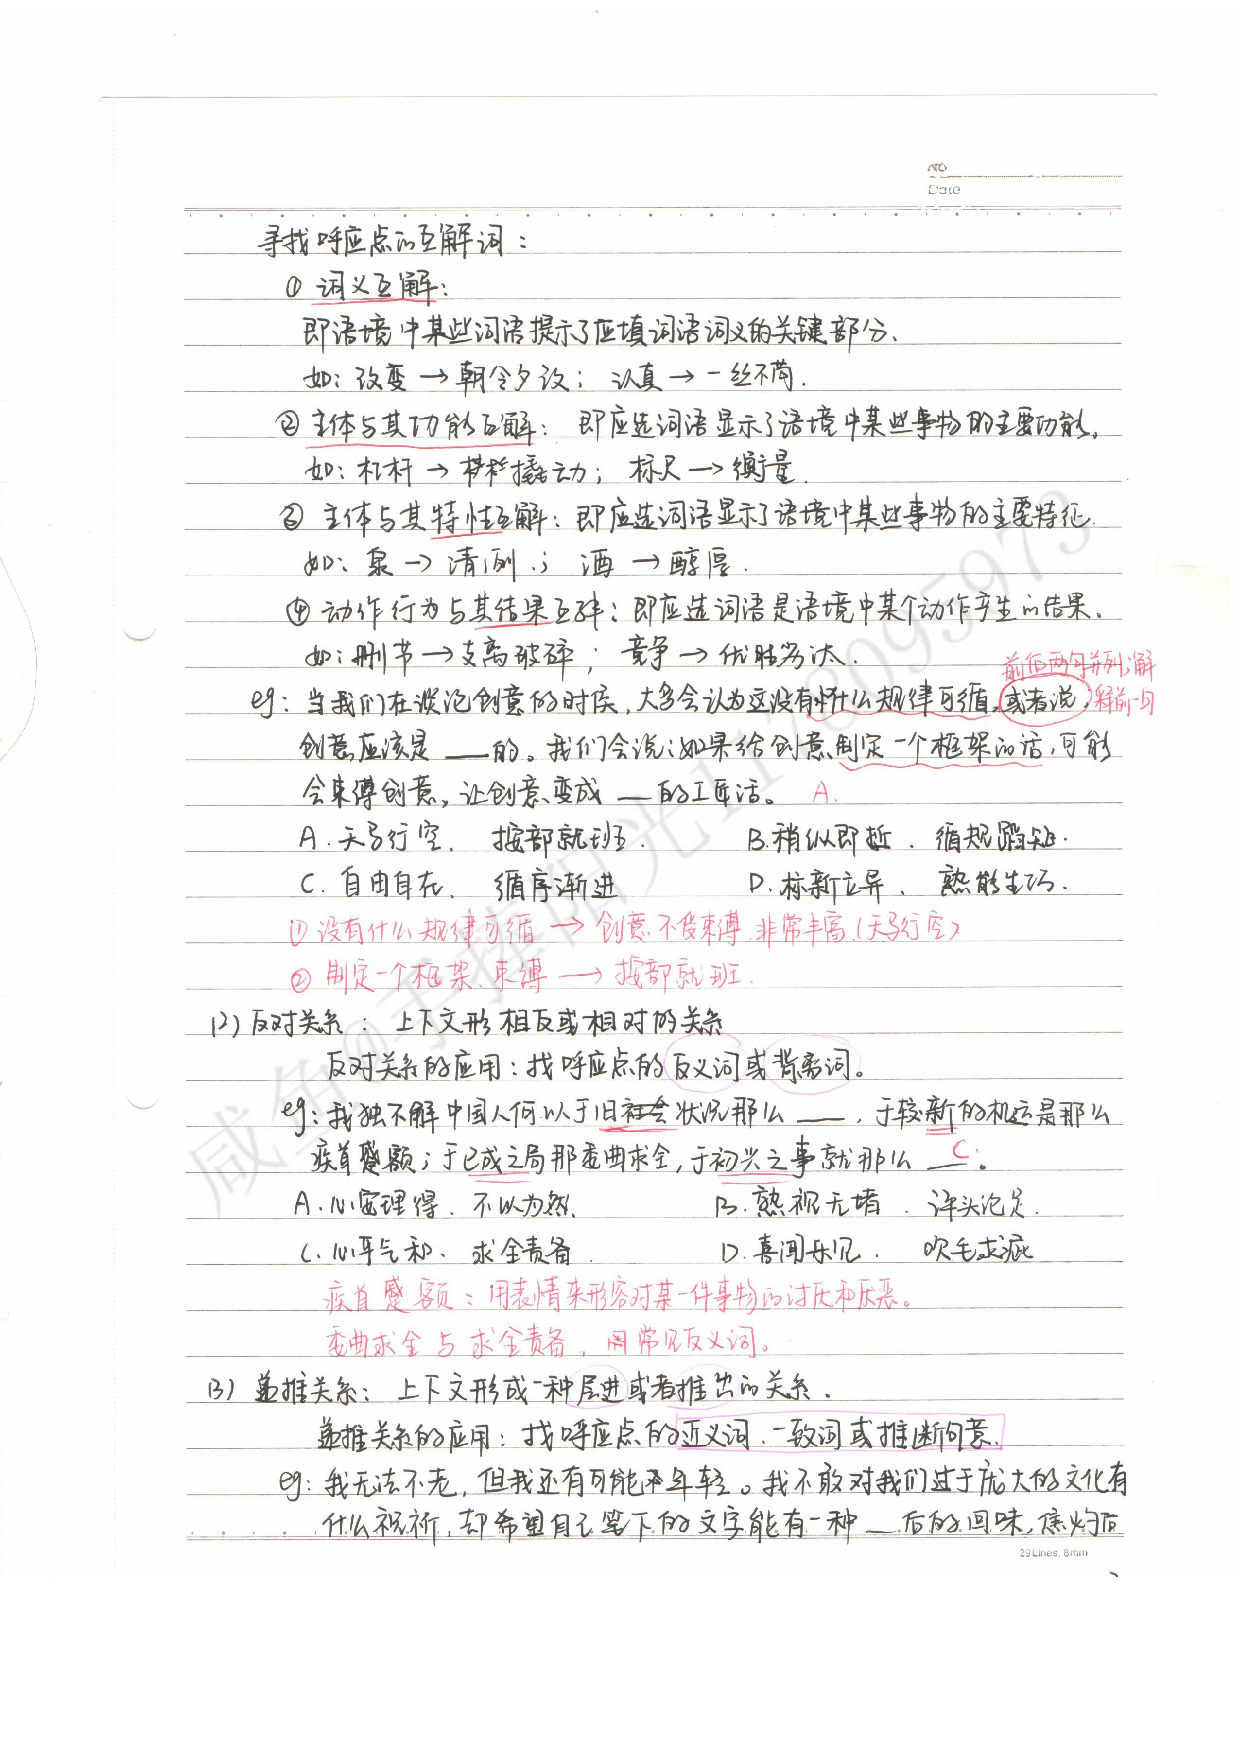 NO
Date
寻找呼应点的互解词：
① 词义互解：
即语境中某些词语提示了应填词语词义的关键部分、
如：改变 → 朝令夕改； 认真 → 一丝不苟.
② 主体与其功能互解： 即应选词语显示了语境中某些事物的主要功能。
如：杠杆 → 撬动； 标尺 → 衡量.
③ 主体与其特性互解：即应选词语显示了语境中某些事物的主要特征.
如： 泉 → 清冽； 酒 → 醇厚.
④ 动作行为与其结果互解：即应选词语是语境中某个动作产生的结果.
如：删节 → 支离破碎； 竞争 → 优胜劣汰.
前后两句并列：解释前一句
eg：当我们在谈论创意的时候，大多会认为这没有什么规律可循，或者说，
创意应该是 ___ 的。我们会说：如果给创意制定一个框架的话，可能
会束缚创意，让创意变成 __ 的工匠活。 A.
A.天马行空. 按部就班. B.稍纵即逝. 循规蹈矩.
C.自由自在. 循序渐进 D.标新立异. 熟能生巧.
①没有什么规律可循 → 创意不受束缚.非常丰富.(天马行空)
② 制定一个框架.束缚 → 按部就班.
(2)反对关系： 上下文形相反或相对的关系
反对关系的应用：找呼应点的反义词或背离词。
eg：我独不解中国人何以于旧状况那么 ___ ，于较新的机运是那么
疾首蹙额；于已成之局那委曲求全，于初兴之事就那么 ___ 。 C.
A.心安理得. 不以为然. B.熟视无堵. 评头论足.
C.心平气和. 求全责备. D.喜闻乐见. 吹毛求疵
疾首蹙额：用表情来形容对某一件事物的讨厌和厌恶。
委曲求全与求全责备，网常见反义词。
(3) 递推关系： 上下文形成一种层进或者推出的关系.
递推关系的应用：找呼应点的近义词.一致词或推断句意.
eg：我无法不老，但我还有可能年轻。我不敢对我们过于庞大的文化有
什么祝祈，却希望自己笔下的文字能有一种 __ 后的回味，焦灼后
29 Lines, 8mm
咸鱼@手捧阳光1178095973